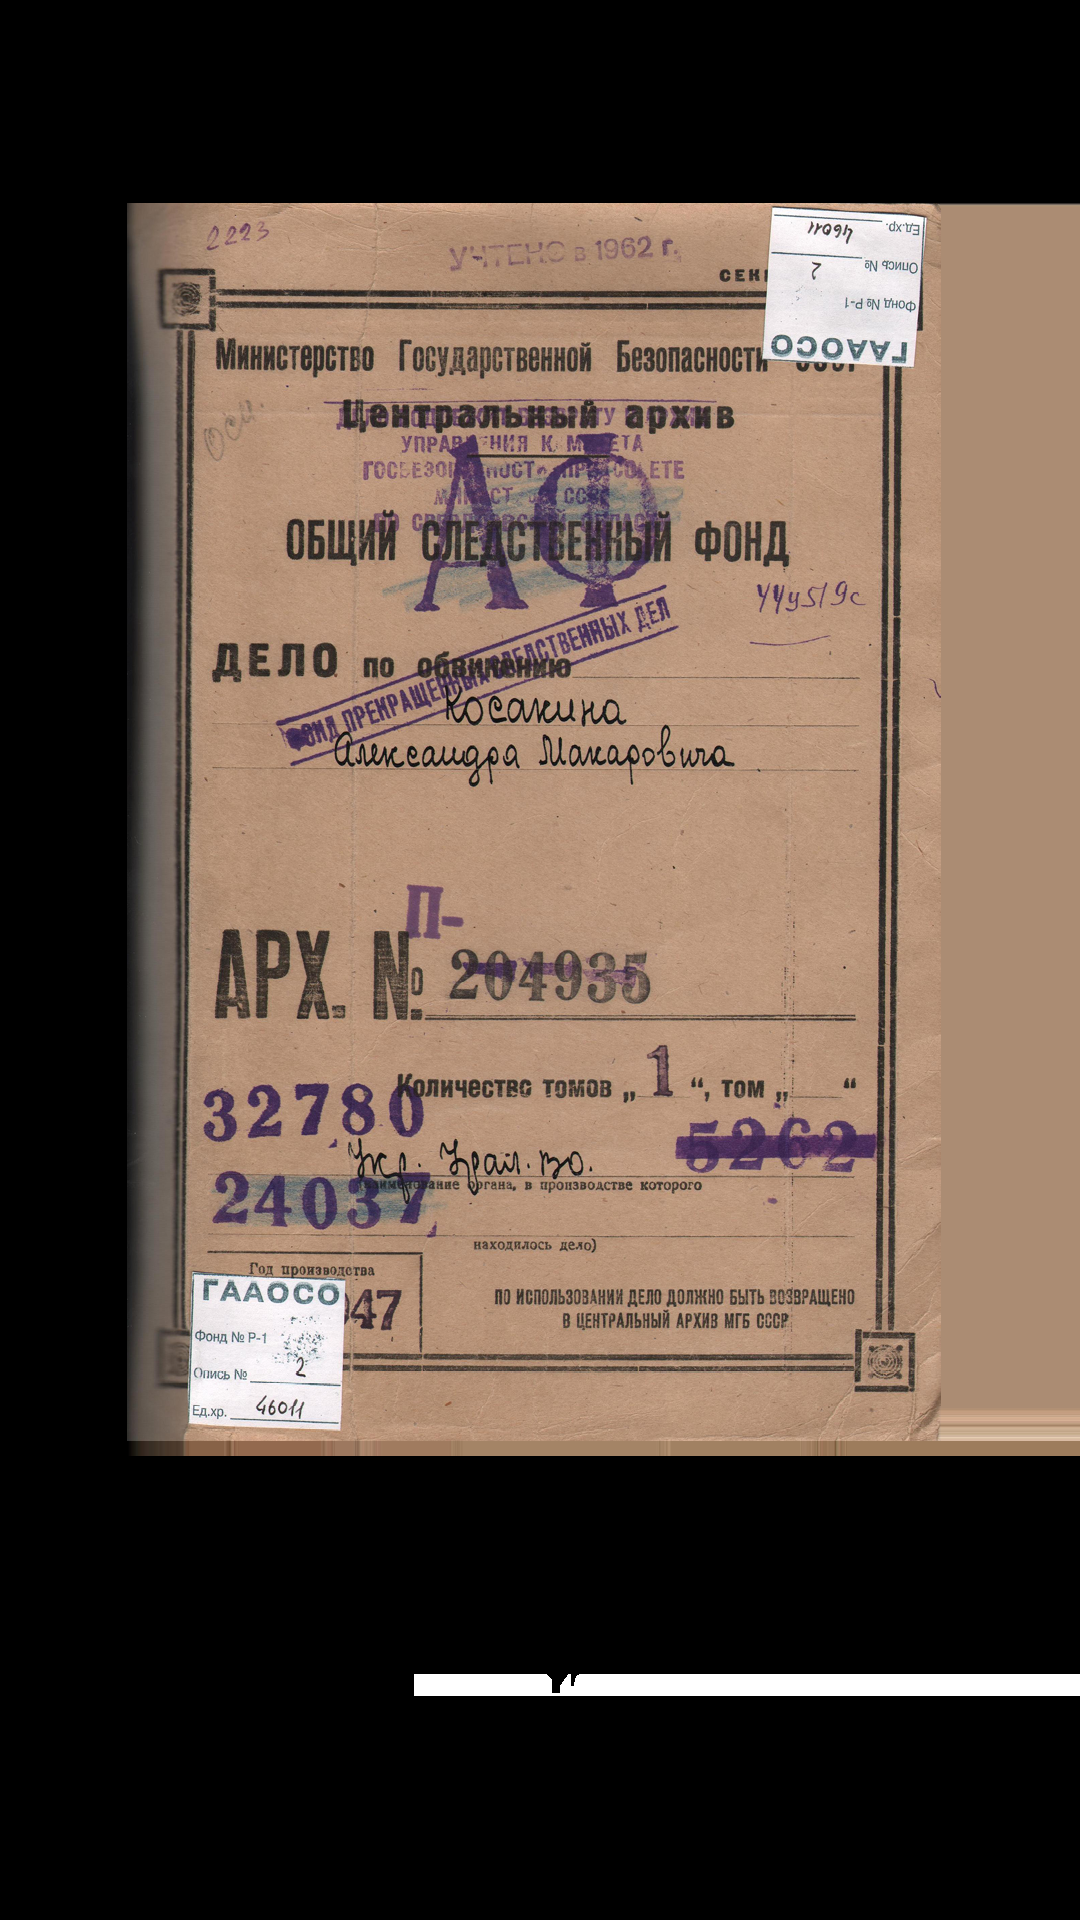 2223
УЧТЕНО в 1962 г.
Ед.хр. 46011
Опись № 2
Фонд № Р-1
ГААОСО
Министерство Государственной Безопасности СССР
Центральный архив
УПРАВЛЕНИЯ К МИТЕТА
ГОСБЕЗОПАСНОСТИ ПРИ СОВЕТЕ
АФ
ОБЩИЙ СЛЕДСТВЕННЫЙ ФОНД
ДЕЛО по обвинению
ФОНД ПРЕКРАЩЕННЫХ СЛЕДСТВЕННЫХ ДЕЛ
Косакина
Александра Макаровича
П-
АРХ. № 204935
Количество томов „ 1 “, том „ “
32780
5262
Укр. Урал. ВО.
24037
(наименование органа, в производстве которого
находилось дело)
Год производства
947
ПО ИСПОЛЬЗОВАНИИ ДЕЛО ДОЛЖНО БЫТЬ ВОЗВРАЩЕНО
В ЦЕНТРАЛЬНЫЙ АРХИВ МГБ СССР
ГААОСО
Фонд № Р-1
Опись № 2
Ед.хр. 46011